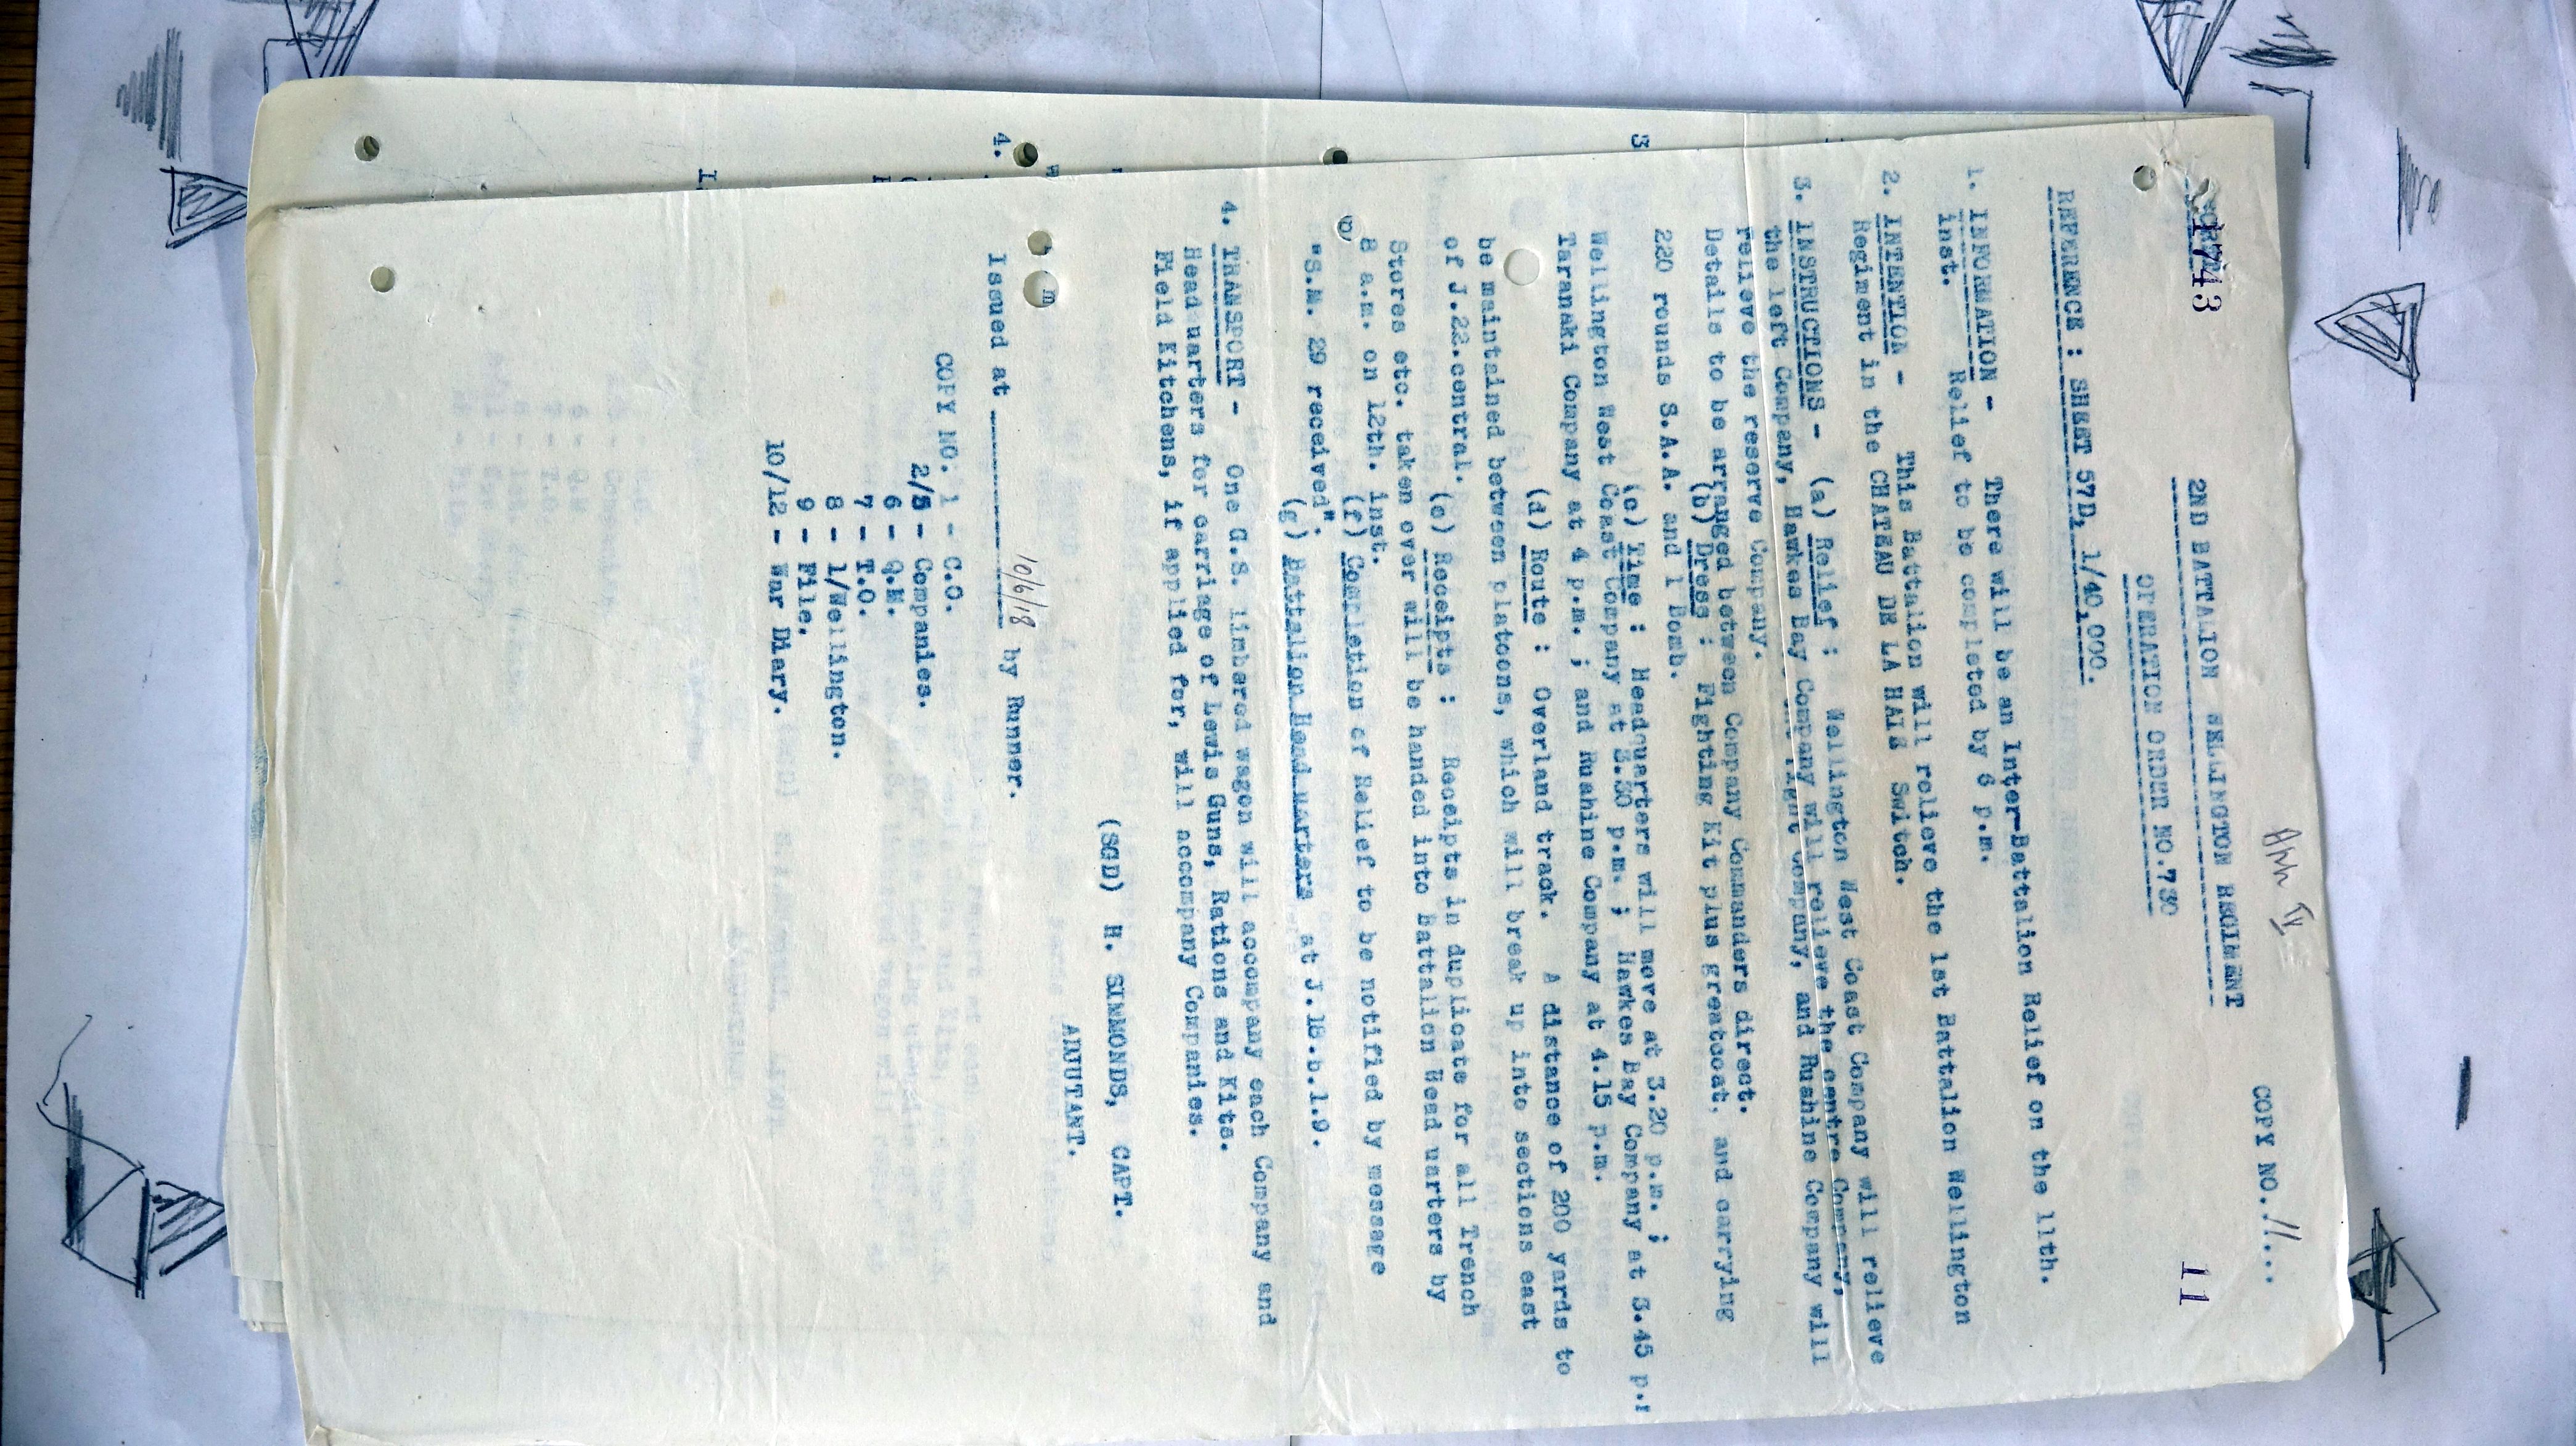 App IV
COPY NO. 11...
1743
11
2ND BATTALION WELLINGTON REGIMENT
OPERATION ORDER NO.730
REFERENCE : SHEET 57D, 1/40,000.
1. INFORMATION - There will be an Inter-Battalion Relief on the 11th.
inst. Relief to be completed by 6 p.m.
2. INTENTION - This Battalion will relieve the 1st Battalion Wellington
Regiment in the CHATEAU DE LA HAIE Switch.
3. INSTRUCTIONS - (a) Relief : Wellington West Coast Company will relieve
the left Company, Hawkes Bay Company will relieve the centre Company,
Company, and Ruahine Company will
relieve the reserve Company.
Details to be arranged between Company Commanders direct.
(b) Dress : Fighting Kit plus greatcoat, and carrying
220 rounds S.A.A. and 1 Bomb.
(c) Time : Headquarters will move at 3.20 p.m. ;
Wellington West Coast Company at 3.30 p.m. ; Hawkes Bay Company at 3.45 p.m
Taranaki Company at 4 p.m. ; and Ruahine Company at 4.15 p.m.
(d) Route : Overland track. A distance of 200 yards to
be maintained between platoons, which will break up into sections east
of J.22.central.
(e) Receipts : Receipts in duplicate for all Trench
Stores etc. taken over will be handed into Battalion Head uarters by
8 a.m. on 12th. inst.
(f) Completion of Relief to be notified by message
"S.M. 29 received".
(g) Battalion Head uarters at J.18.b.1.9.
4. TRANSPORT - One G.S. limbered wagon will accompany each Company and
Head uarters for carriage of Lewis Guns, Rations and Kits.
Field Kitchens, if applied for, will accompany Companies.
(SGD) H. SIMMONDS, CAPT.
ADJUTANT.
Issued at 10/6/18 by Runner.
COPY NO. 1 - C.O.
2/5 - Companies.
6 - Q.M.
7 - T.O.
8 - 1/Wellington.
9 - File.
10/12 - War Diary.
3
4.